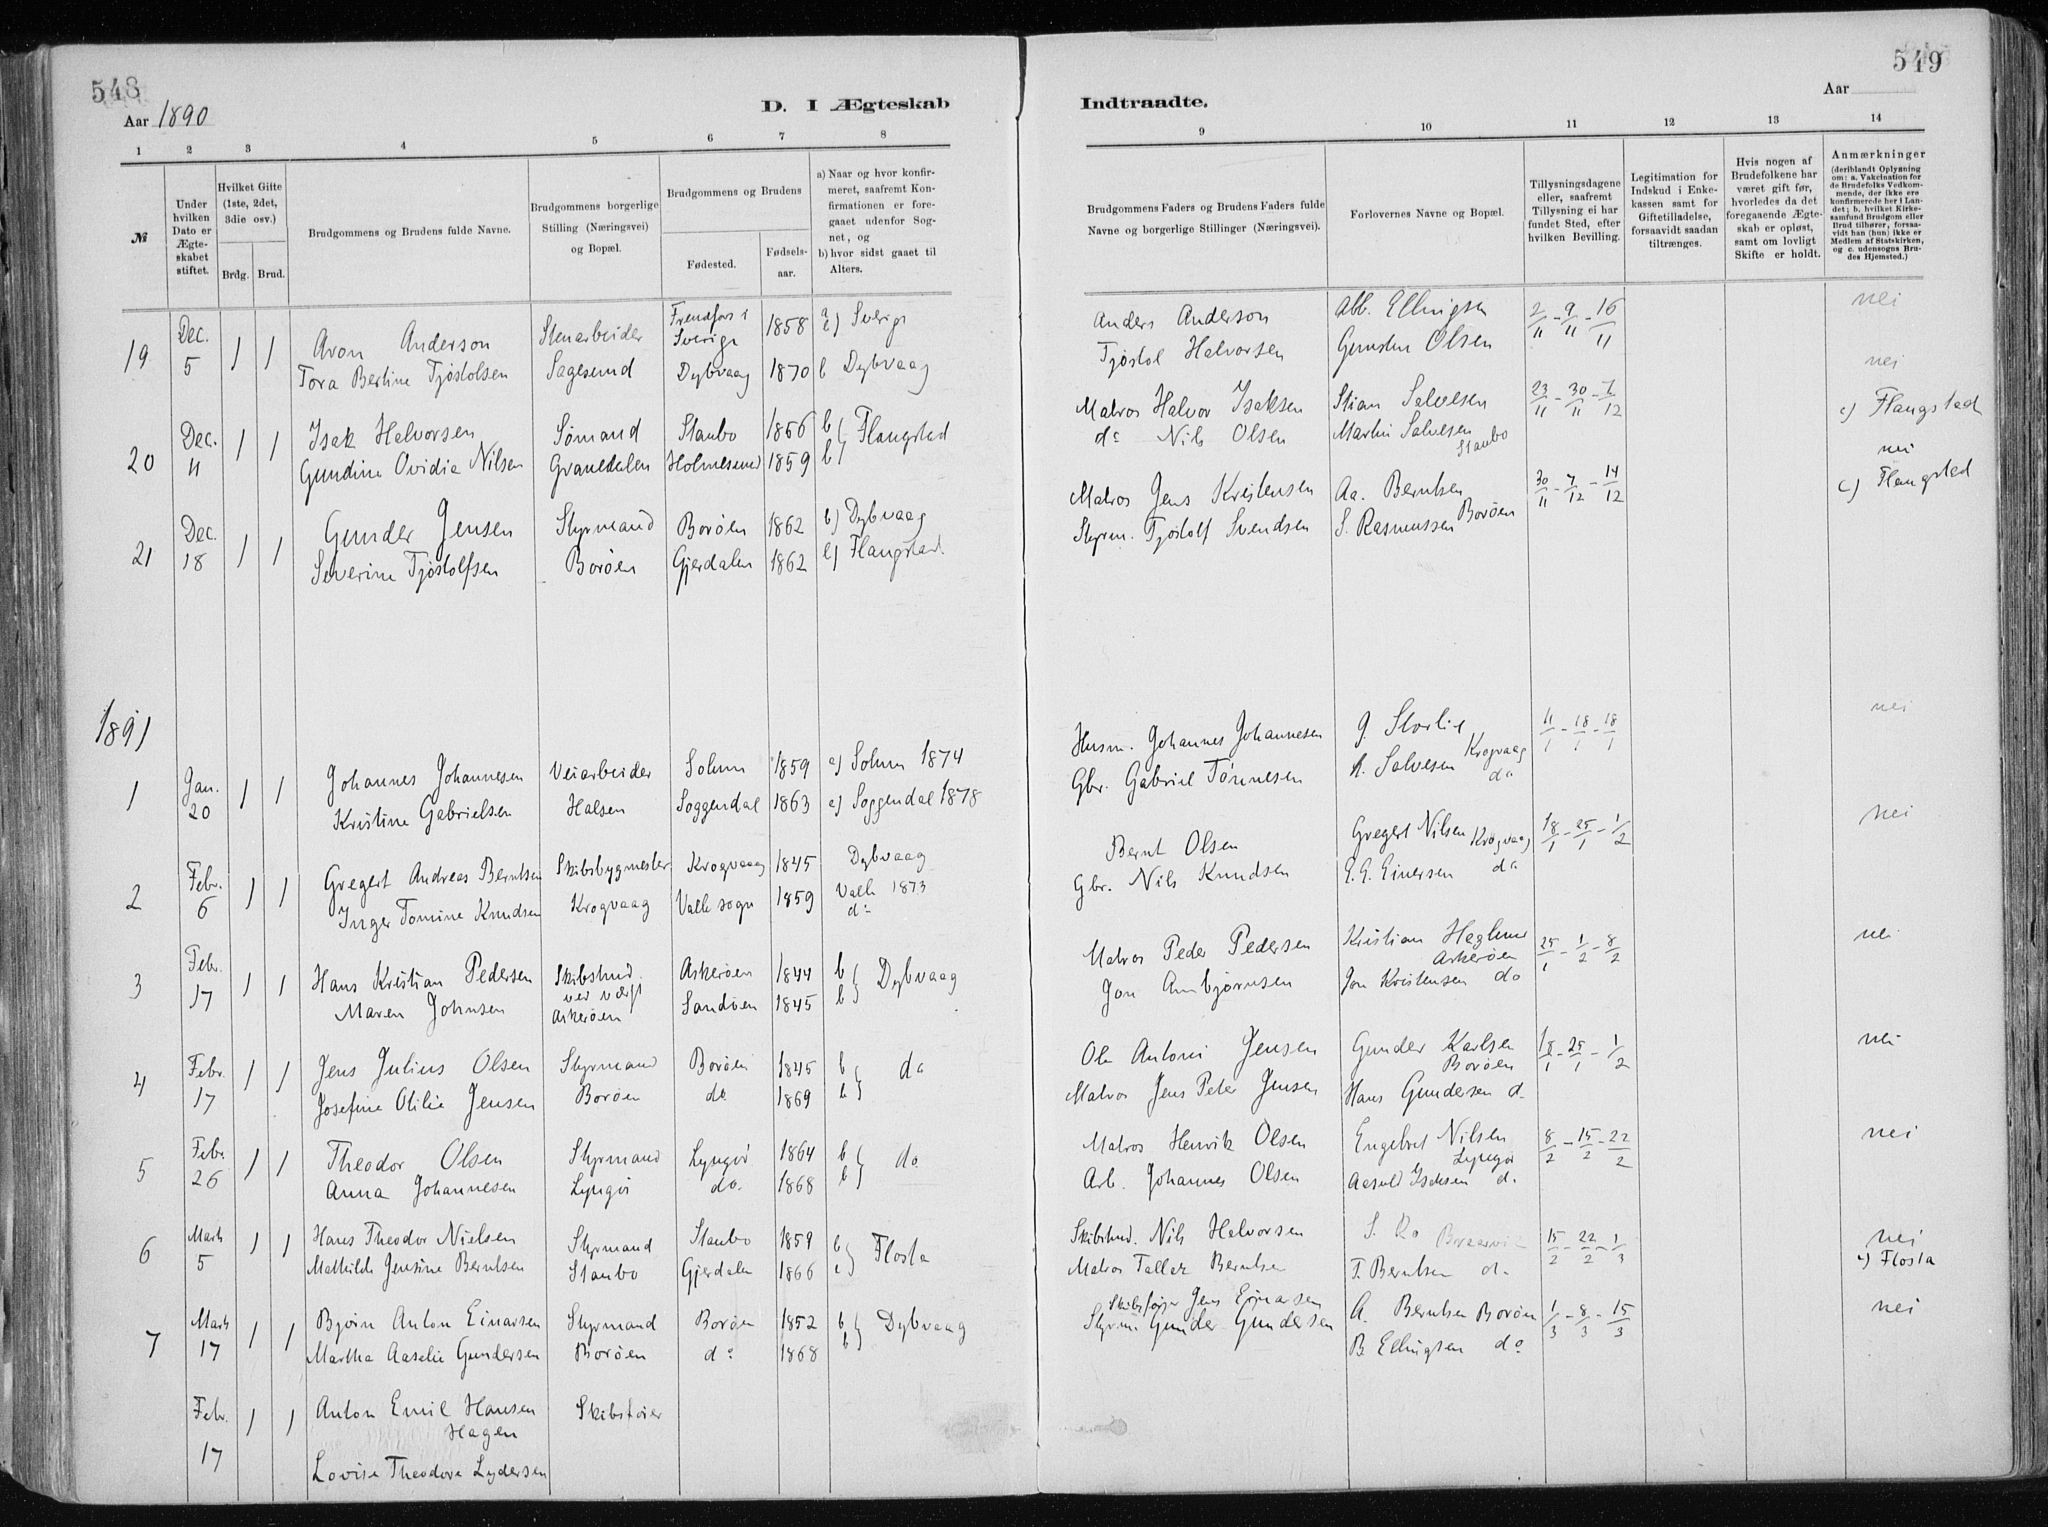 548
Aar 1890
D. I Ægteskab
1 2 3 4 5 6 7 8
№
Under hvilken Dato er Ægteskabet stiftet.
Hvilket Gifte (1ste, 2det, 3die osv.)
Brdg. Brud.
Brudgommens og Brudens fulde Navne.
Brudgommens borgerlige Stilling (Næringsvei) og Bopæl.
Brudgommens og Brudens
Fødested.
Fødselsaar.
a) Naar og hvor konfirmeret, saafremt Konfirmationen er foregaaet udenfor Sognet, og
b) hvor sidst gaaet til Alters.
19 Dec. 5 1 1 Aron Anderson Stenarbeider Sverige 1858 Sverige
Tora Bertine Tjøstolsen Sagesund Dybvaag 1870 b Dybvaag
20 Dec. 11 1 1 Isak Halvorsen Sømand Staubo 1866 b) Flangstad
Gundine Ovidia Nilsen Granedalen Holmesund 1859 b)
21 Dec. 18 1 1 Gunder Jensen Styrmand Borøen 1862 b) Dybvaag
Severine Tjøstolfsen Borøen Gjerdalen 1862 Flangstad.
1891
1 Jan. 20 1 1 Johannes Johannesen Veiarbeider Solum 1859 a) Solum 1874
Kristine Gabrielsen Halsen Soggendal 1863 a) Soggendal 1878
2 Febr. 6 1 1 Gregert Andreas Berntsen Skibsbygmester Krogvaag 1845 Dybvaag
Inger Tomine Knudsen Krogvaag Valle sogn 1859 Valle 1873
do
3 Febr. 17 1 1 Hans Kristian Pedersen Skibstmd. Askerøen 1844 b) Dybvaag
ved værft
Maren Johnsen Askerøen Sandøen 1845 b)
4 Febr. 17 1 1 Jens Julius Olsen Styrmand Borøen 1845 b) do
Josefine Otilie Jensen Borøen do. 1869 b)
5 Febr. 26 1 1 Theodor Olsen Styrmand Lyngør 1864 b) do
Anna Johannesen Lyngør do. 1868 b)
6 Marts 5 1 1 Hans Theodor Nielsen Styrmand Staubo 1859 Flosta
Mathilde Jensine Berntsen Staubo Gjerdalen 1866
7 Marts 17 1 1 Bjørn Anton Einarsen Styrmand Borøen 1852 b) Dybvaag
Martha Aaselie Gundersen Borøen do 1868 b)
Febr. 17 1 1 Anton Emil Hansen Skibsfører
Hagen
Lovise Theodora Lydersen
549
Indtraadte.
Aar
9 10 11 12 13 14
Brudgommens Faders og Brudens Faders fulde Navne og borgerlige Stillinger (Næringsvei).
Forlovernes Navne og Bopæl.
Tillysningsdagene eller, saafremt Tillysning ei har fundet Sted, efter hvilken Bevilling.
Legitimation for Indskud i Enkekassen samt for Giftetilladelse, forsaavidt saadan tiltrænges.
Hvis nogen af Brudefolkene har været gift før, hvorledes da det foregaaende Ægteskab er opløst, samt om lovligt Skifte er holdt.
Anmærkninger
(deriblandt Oplysning om: a. Vakcination for de Brudefolks Vedkommende, der ikke ere konfirmerede her i Landet; b. hvilket Kirkesamfund Brudgom eller Brud tilhører, forsaavidt han (hun) ikke er Medlem af Statskirken, og c. udensogns Brudes Hjemsted.)
Anders Anderson Abb. Ellingsen 2/11 - 9/11 - 16/11 nei
Tjøstol Halvorsen Gunsten Olsen nei
Matros Halvor Isaksen Stian Salvesen 23/11 - 30/11 - 7/12 c) Flangstad
do Nils Olsen Martin Salvesen
Staubo
nei
Matros Jens Kristensen Aa. Berntsen 30/11 - 7/12 - 14/12 c) Flangstad
Borøen
Styrm. Tjøstolf Svendsen S. Rasmussen
Husm. Johannes Johannesen G. Storlie 11/1 - 18/1 - 18/1 nei
Krogvaag
Gbr. Gabriel Tønnesen A. Salvesen do
Bernt Olsen Gregert Nilsen Krogvaag 18/1 - 25/1 - 1/2 nei
Gbr. Nils Knudsen E. G. Einersen do
Matros Peder Pedersen Kristian Heglund 25/1 - 1/2 - 8/2 nei
Askerøen
Jon Annbjørnsen Jon Kristensen do
Ole Antoni Jensen Gunder Karlsen 18/1 - 25/1 - 1/2 nei
Borøen
Matros Jens Peter Jensen Hans Gundersen do
Matros Henrik Olsen Engebret Nilsen 8/2 - 15/2 - 22/2 nei
Lyngør
Arb. Johannes Olsen Aasuld Isaksen do
Skibstmd. Nils Halvorsen 15/2 - 22/2 - 1/3 nei
Matros Tallak Berntsen T. Berntsen do c) Flosta
Skibsfører Jens Einarsen
Styrm. Gunder Gundersen A. Berntsen Borøen 1/3 - 8/3 - 15/3 nei
B. Ellingsen do